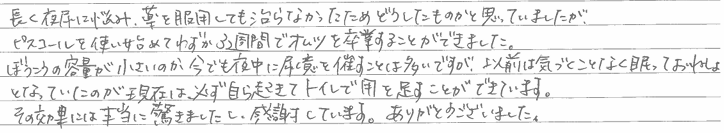 長く夜尿に悩み、薬を服用しても治らなかったためどうしたものかと思っていましたが、
ピスコールを使い始めてわずか3週間でオムツを卒業することができました。
ぼうこうの容量が小さいのか、今でも夜中に尿意を催すことは多いですが、以前は気づくことなく眠っておねしょ
となっていたのが現在は、必ず自ら起きてトイレで用を足すことができています。
その効果には本当に驚きましたし、感謝しています。ありがとうございました。